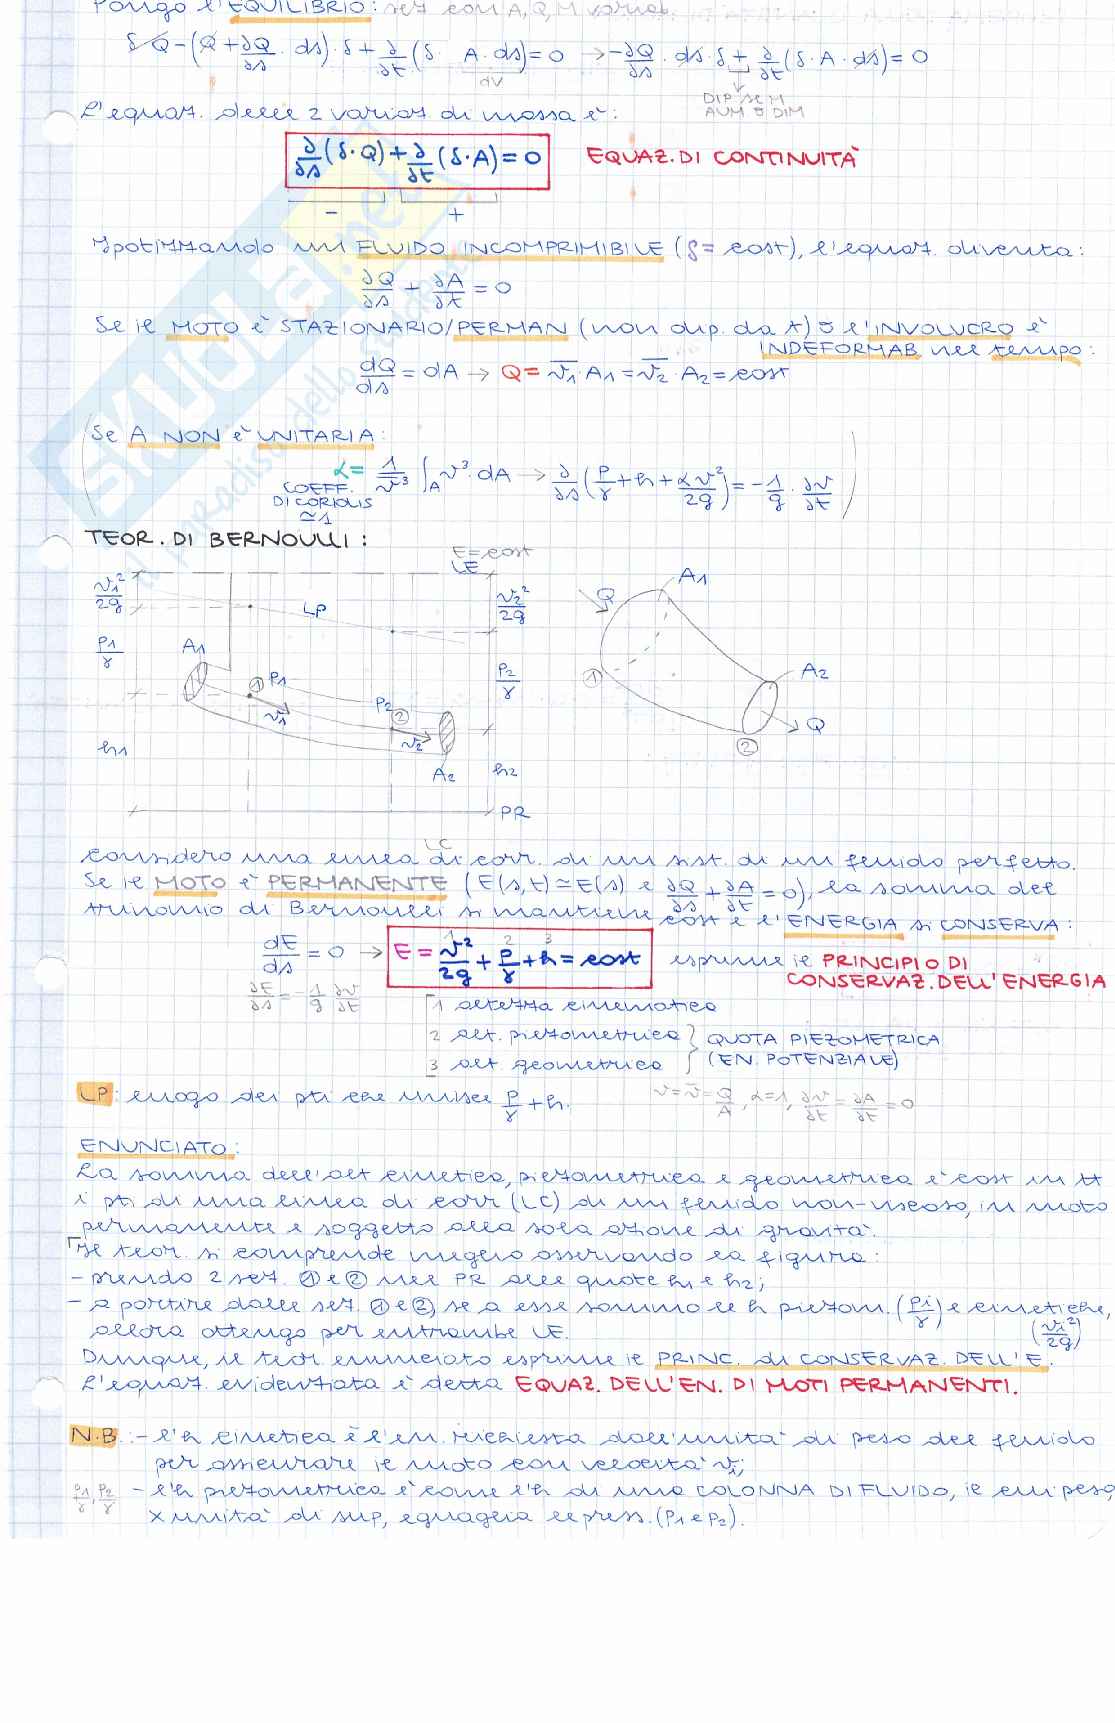 Pongo l'EQUILIBRIO: sez con A, Q, M variaz.
δQ - (Q + ∂Q/∂s · ds) · δ + ∂/∂t (δ · A · ds) = 0 → -∂Q/∂s · ds · δ + ∂/∂t (δ · A · ds) = 0
dV
DIP SE M
AUM O DIM
L'equaz. delle 2 variaz di massa è:
∂/∂s (δ·Q) + ∂/∂t (δ·A) = 0 EQUAZ. DI CONTINUITÀ
- +
Ipotizzando un FLUIDO INCOMPRIMIBILE (δ = cost), l'equaz. diventa:
∂Q/∂s + ∂A/∂t = 0
Se il MOTO è STAZIONARIO/PERMAN (non dip. da t) o l'INVOLUCRO è
INDEFORMAB nel tempo:
dQ/ds = dA → Q = v̄1 · A1 = v̄2 · A2 = cost
(Se A NON è UNITARIA:
α = 1/v̄³ ∫A v³ · dA → ∂/∂s (p/γ + h + αv²/2g) = -1/g · ∂v/∂t)
COEFF.
DI CORIOLIS
≃1
TEOR. DI BERNOULLI:
E = cost
LE
v1²/2g
LP
v2²/2g
Q
A1
p1/γ
A1
① P1
v1
P2
②
v2
p2/γ
①
A2
Q
②
h1
A2
h2
PR
LC
Considero una linea di corr. di un sist. di un fluido perfetto.
Se il MOTO è PERMANENTE (E(s,t) ≃ E(s) e ∂Q/∂s + ∂A/∂t = 0), la somma del
trinomio di Bernoulli si mantiene cost e l'ENERGIA si CONSERVA:
1 2 3
dE/ds = 0 → E = v²/2g + p/γ + h = cost esprime il PRINCIPIO DI
CONSERVAZ. DELL'ENERGIA
∂E/∂s = -1/g ∂v/∂t
1 altezza cinematica
2 alt. piezometrica } QUOTA PIEZOMETRICA
3 alt. geometrica } (EN. POTENZIALE)
LP: luogo dei pti che unisce p/γ + h.
v = v̄ = Q/A, α=1, ∂v/∂t = ∂A/∂t = 0
ENUNCIATO:
La somma dell'alt cinetica, piezometrica e geometrica è cost in tt
i pti di una linea di corr (LC) di un fluido non-viscoso, in moto
permanente e soggetto alla sola azione di gravità.
Il teor. si comprende meglio osservando la figura:
- prendo 2 sez. ① e ② nel PR alle quote h1 e h2;
- a partire dalle sez. ① e ②, se a esse sommo le h piezom. (pi/γ) e cinetiche,
(vi²/2g)
allora ottengo per entrambe LE.
Dunque, il teor. enunciato esprime il PRINC. di CONSERVAZ. DELL'E.
L'equaz. evidenziata è detta EQUAZ. DELL'EN. DI MOTI PERMANENTI.
N.B.: - l'h cinetica è l'en. richiesta dall'unità di peso del fluido
per assicurare il moto con velocità vi;
p1/γ, p2/γ - l'h piezometrica è come l'h di una COLONNA DI FLUIDO, il cui peso,
x unità di sup, eguaglia le press. (P1 e P2).
SKUOLA.net
il paradiso dello studente